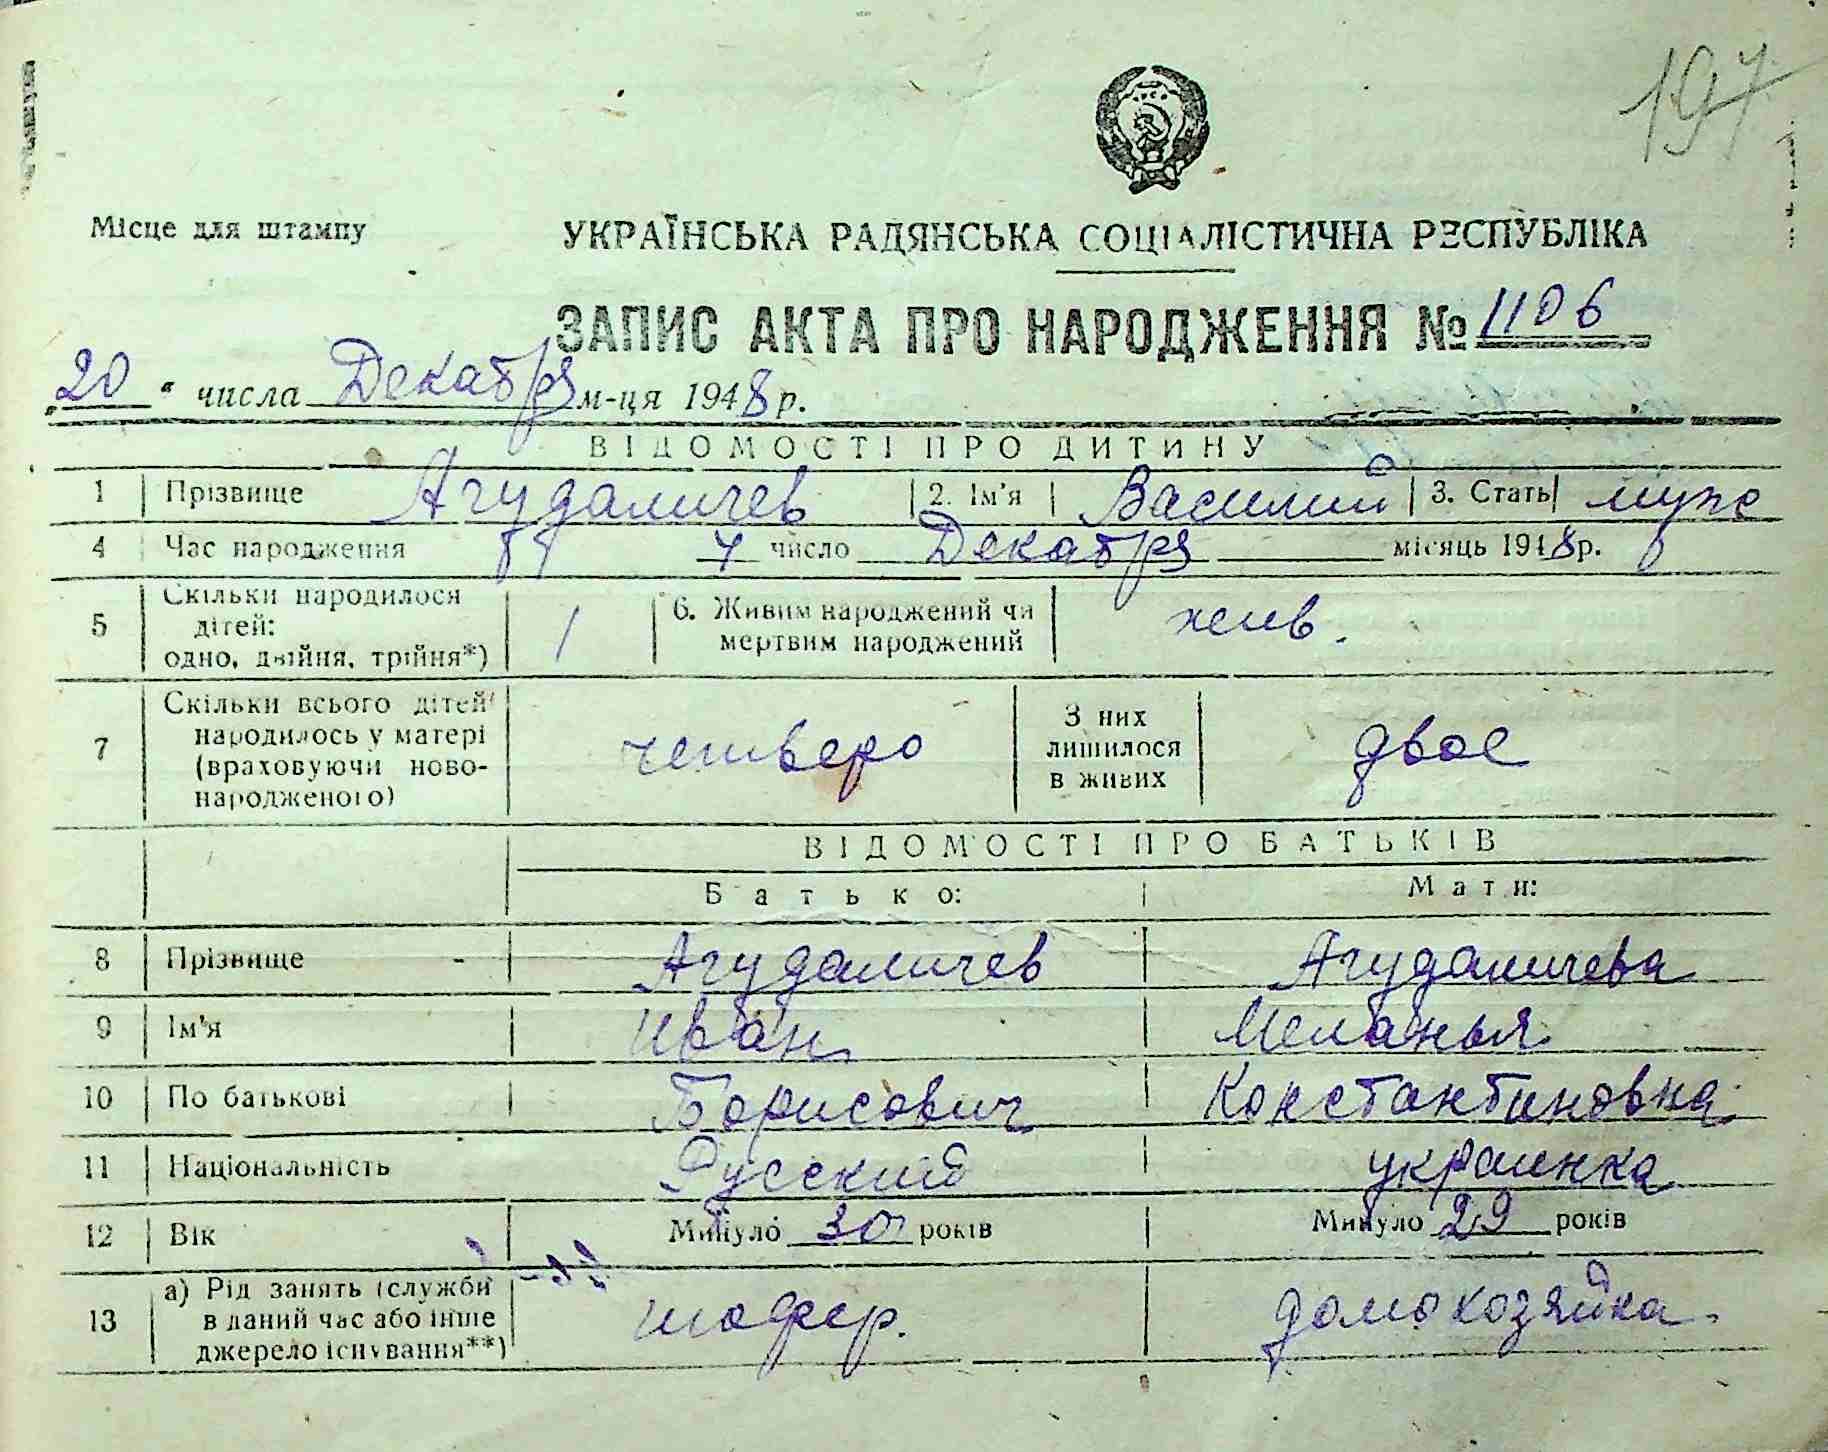 197
Місце для штампу
УКРАЇНСЬКА РАДЯНСЬКА СОЦІАЛІСТИЧНА РЕСПУБЛІКА
ЗАПИС АКТА ПРО НАРОДЖЕННЯ № 1106
„20“ числа Декабря м-ця 1948 р.
ВІДОМОСТІ ПРО ДИТИНУ
1 Прізвище Агудаличев 2. Ім'я Василий 3. Стать муж
4 Час народження 7 число Декабря місяць 1948 р.
5 Скільки народилося дітей: одно, двійня, трійня*) 1 6. Живим народжений чи мертвим народжений жив.
7 Скільки всього дітей народилось у матері (враховуючи ново-народженого) четверо З них лишилося в живих двое
ВІДОМОСТІ ПРО БАТЬКІВ
Батько: Мати:
8 Прізвище Агудаличев Агудаличева
9 Ім'я Иван Меланья
10 По батькові Борисович Константиновна
11 Національність Русский украинка
12 Вік Минуло 30 років Минуло 29 років
13 а) Рід занять (служби в даний час або інше джерело існування**) шофер. домохозяйка.